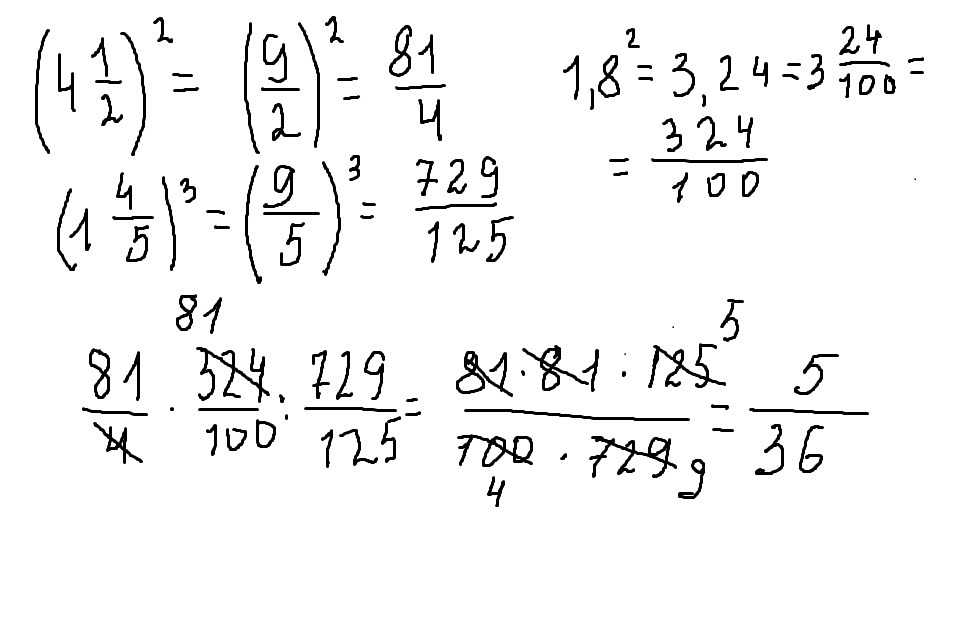 (4 1/2)² = (9/2)² = 81/4
1,8² = 3,24 = 3 24/100 =
= 324/100
(1 4/5)³ = (9/5)³ = 729/125
81
81/4 · 324/100 : 729/125 = 81·81·125/100·729 = 5/36
5
4 9